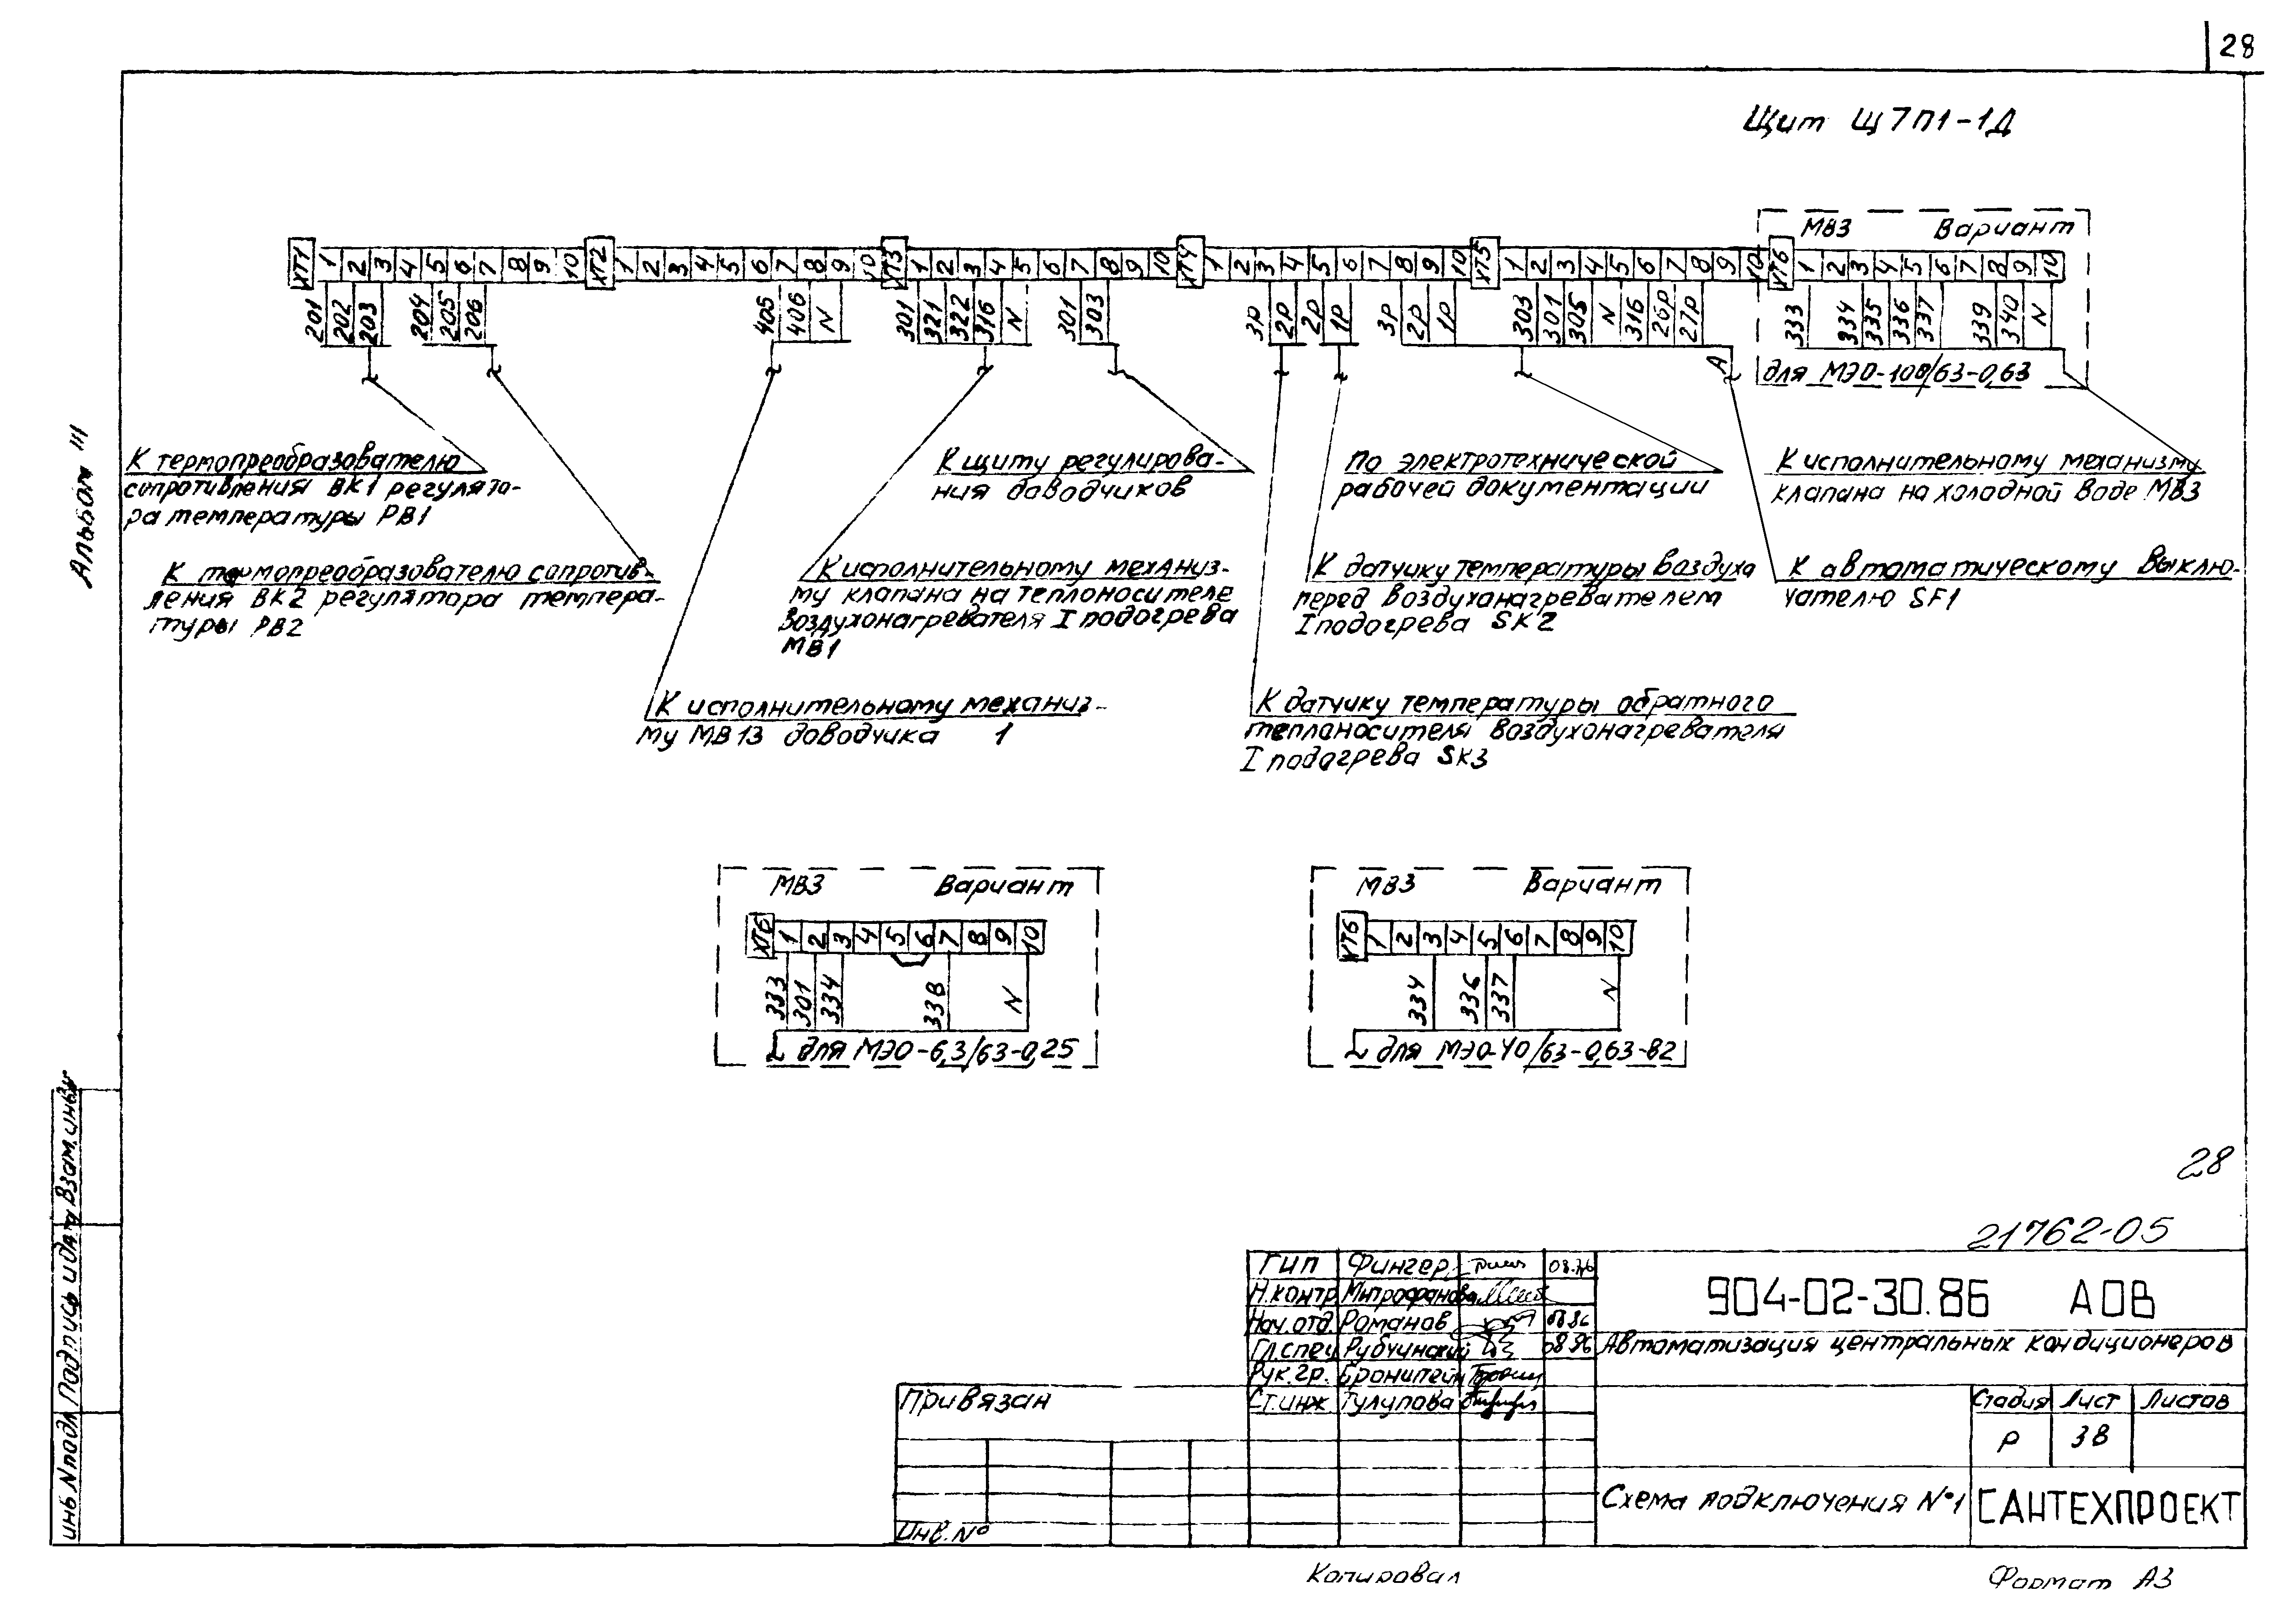 28
Щит Щ7П1-1Д
МВ3 Вариант
ХТ1 1 2 3 4 5 6 7 8 9 10 ХТ2 1 2 3 4 5 6 7 8 9 10 ХТ3 1 2 3 4 5 6 7 8 9 10 ХТ4 1 2 3 4 5 6 7 8 9 10 ХТ5 1 2 3 4 5 6 7 8 9 10 ХТ6 1 2 3 4 5 6 7 8 9 10
201 202 203 204 205 206 405 406 N 301 321 322 316 N 301 303 3Р 2Р 2Р 1Р 3Р 2Р 1Р 303 301 305 N 316 26Р 27Р 333 334 335 336 337 339 340 N
А
для МЭО-100/63-0,63
К термопреобразователю
сопротивления ВК1 регулято-
ра температуры РВ1
К щиту регулирова-
ния доводчиков
По электротехнической
рабочей документации
К исполнительному механизму
клапана на холодной воде МВ3
К термопреобразователю сопротив-
ления ВК2 регулятора темпера-
туры РВ2
К исполнительному механиз-
му клапана на теплоносителе
воздухонагревателя I подогрева
МВ1
К датчику температуры воздуха
перед воздуханагревателем
I подогрева SK2
К автоматическому выклю-
чателю SF1
К исполнительному механиз-
му МВ13 доводчика 1
К датчику температуры обратного
теплоносителя воздухонагревателя
I подогрева SK3
МВ3 Вариант
ХТ6 1 2 3 4 5 6 7 8 9 10
333 301 334 338 N
для МЭО-6,3/63-0,25
МВ3 Вариант
ХТ6 1 2 3 4 5 6 7 8 9 10
334 336 337 N
для МЭО-40/63-0,63-82
Альбом III
инв N подл Подпись и дата Взам. инв N
28
21762-05
ГИП Фингер
Н.контр Митрофанова
Нач.отд. Романов 08.86
Гл.спец Рубчинский 08.86
Рук.гр. Бронштейн
Ст.инж Тулупова
904-02-30.86 АОВ
Автоматизация центральных кондиционеров
Привязан
Инв.№
Стадия Лист Листов
Р 38
Схема подключения №1
САНТЕХПРОЕКТ
Копировал
Формат А3